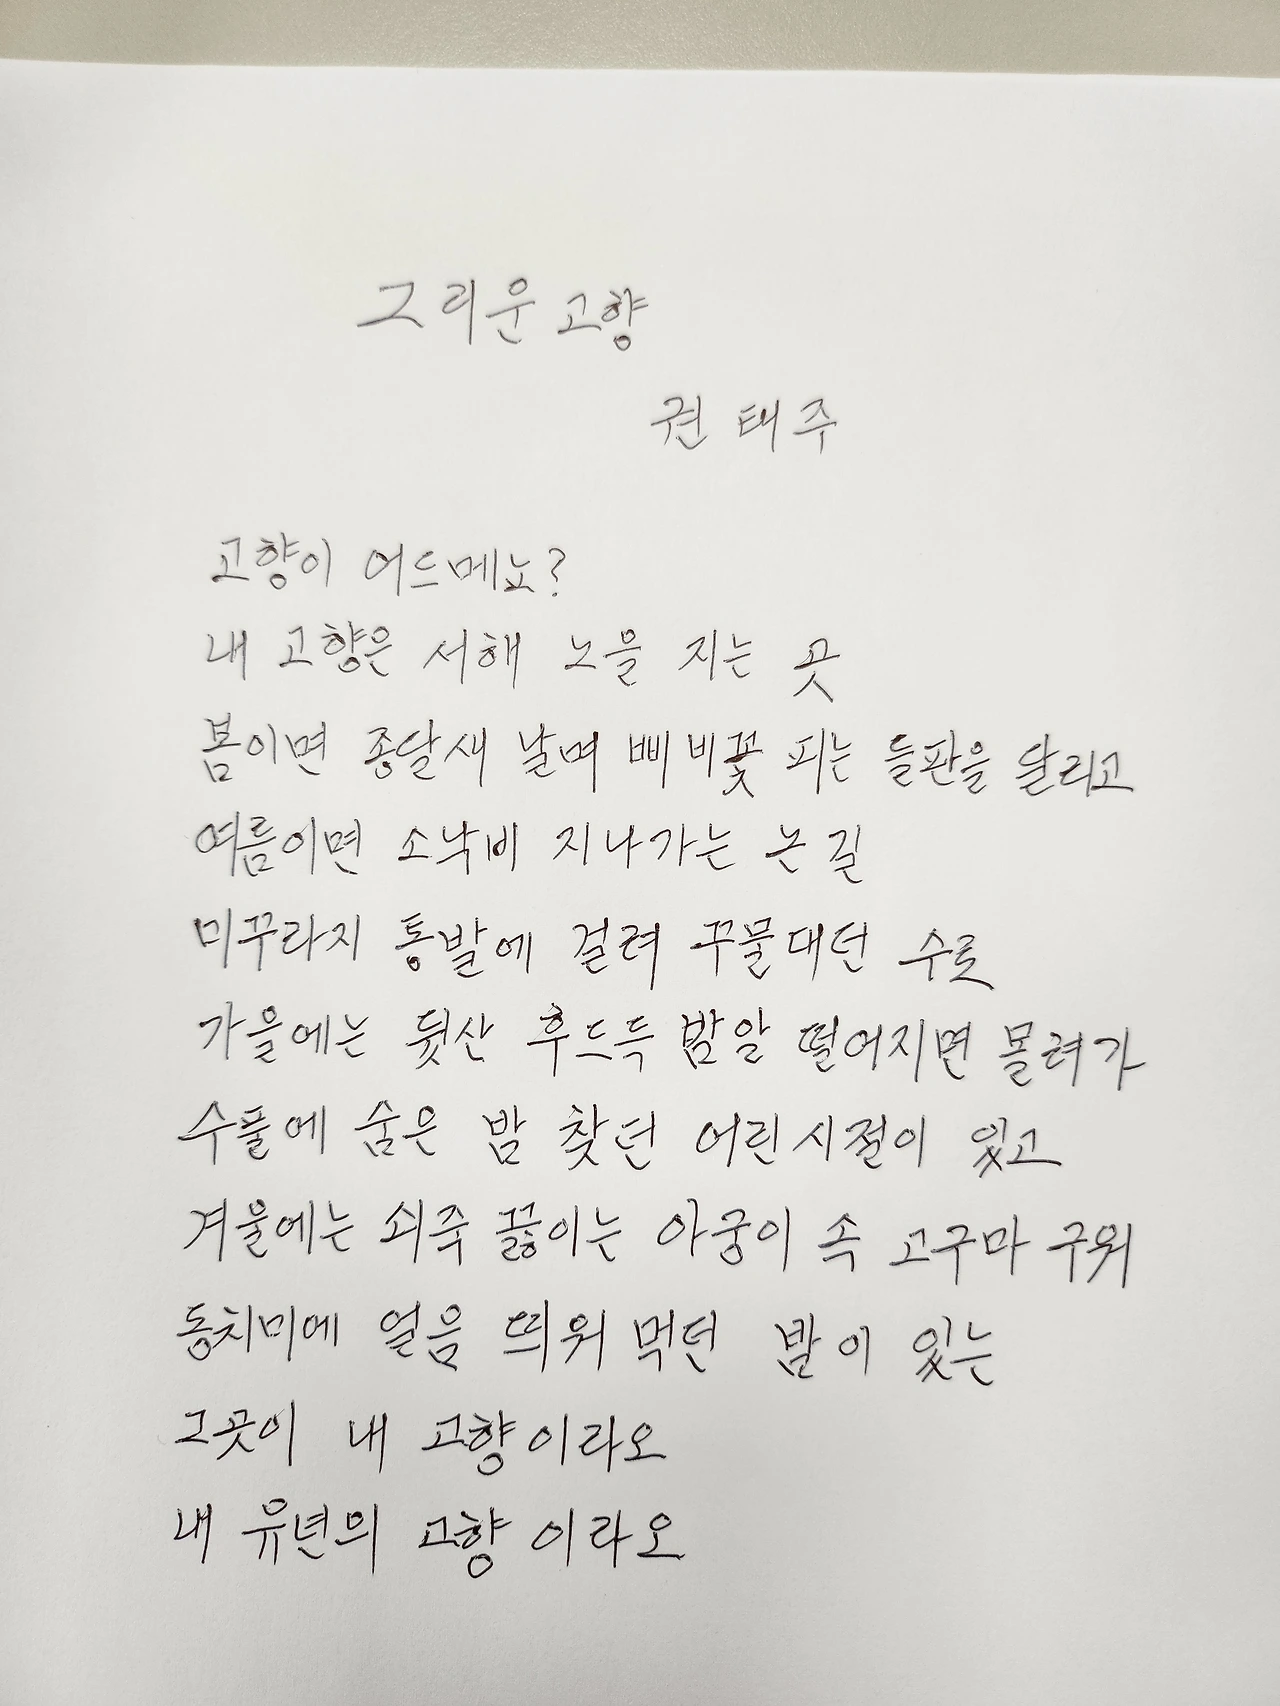 그리운 고향
권태주
고향이 어드메뇨?
내 고향은 서해 노을 지는 곳
봄이면 종달새 날며 삐비꽃 피는 들판을 달리고
여름이면 소낙비 지나가는 논길
미꾸라지 통발에 걸려 꾸물대던 수로
가을에는 뒷산 후드득 밤알 떨어지면 몰려가
수풀에 숨은 밤 찾던 어린시절이 있고
겨울에는 쇠죽 끓이는 아궁이 속 고구마 구워
동치미에 얼음 띄워 먹던 밤이 있는
그곳이 내 고향이라오
내 유년의 고향이라오